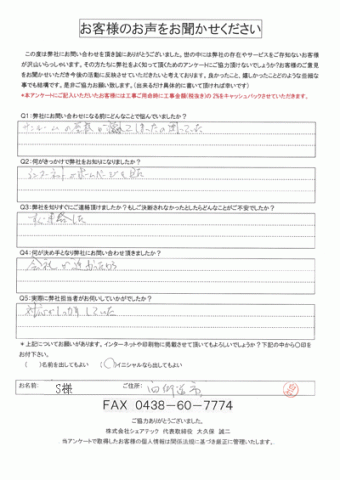 お客様のお声をお聞かせください
この度は弊社にお問い合わせを頂き誠にありがとうございました。世の中には弊社の存在やサービスをご存知ないお客様
が沢山いらっしゃいます。その方たちに弊社をよく知って頂くためのアンケートにご協力頂けないでしょうか?お客様のご意見
をお聞かせいただき今後の活動に反映させていただきたいと考えております。良かったこと、嬉しかったことどのような些細な
事でも結構です。是非ご協力お願い致します。(出来るだけ具体的に書いて頂ければ幸いです)
*本アンケートにご記入いただいたお客様には工事ご用命時に工事金額(税抜き)の2%をキャッシュバックさせていただきます。
Q1:弊社にお問い合わせになる前にどんなことで悩んでいましたか?
サンルームの
しまったの
Q2:何がきっかけで弊社をお知りになりましたか?
インターネットのホームページを見た
Q3:弊社を知りすぐにご連絡頂けましたか?もしご決断されなかったとしたらどんなことがご不安でしたか?
すぐ連絡した
Q4:何が決め手となり弊社にお問い合わせ頂きましたか?
会社が近かったから
Q5:実際に弊社担当者がお伺いしていかがでしたか?
対応がしっかりしていた
*上記についてお願いがあります。インターネットや印刷物に掲載させて頂いてもよろしいでしょうか?下記の中から〇印を
お付下さい。
( )名前を出してもよい (〇)イニシャルなら出してもよい
お名前: S様 ご住所:
FAX 0438-60-7774
ご協力ありがとうございました。
株式会社シェアテック 代表取締役 大久保 誠二
当アンケートで取得したお客様の個人情報は関係法規に基づき厳正に管理いたします。